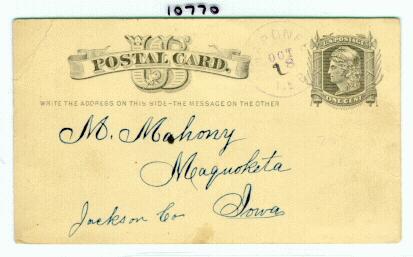 10770
U.S. POSTAGE
POSTAL CARD.
OCT
18
ONE CENT
WRITE THE ADDRESS ON THIS SIDE-THE MESSAGE ON THE OTHER
M. Mahony
Maquoketa
Jackson Co Iowa